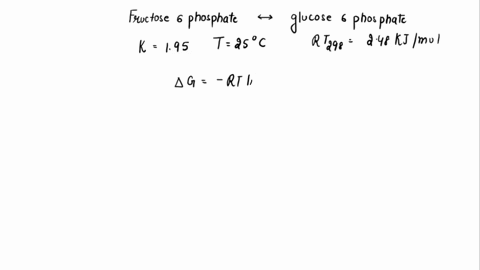 Fructose 6 phosphate ↔ glucose 6 phosphate
K = 1.95 T = 25°C RT298 = 2.48 KJ/mol
ΔG = -RT